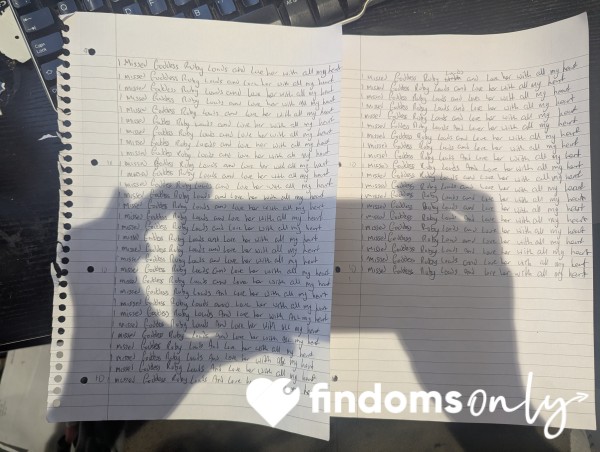 I Missed Goddess Ruby and Love her with all my heart
I missed Goddess Ruby and Love her with all my heart
I missed Goddess Ruby and Love her with all my heart
I missed Goddess Ruby and Love her with all my heart
I missed Goddess Ruby and Love her with all my heart
I missed Goddess Ruby and Love her with all my heart
I missed Goddess Ruby and Love her with all my heart
I missed Goddess Ruby and Love her with all my heart
I missed Goddess Ruby and Love her with all my heart
I missed Goddess Ruby and Love her with all my heart
I missed Goddess Ruby and Love her with all my heart
I missed Goddess Ruby and Love her with all my heart
I missed Goddess Ruby and Love her with all my heart
I missed Goddess Ruby and Love her with all my heart
I missed Goddess Ruby and Love her with all my heart
I missed Goddess Ruby and Love her with all my heart
I missed Goddess Ruby and Love her with all my heart
I missed Goddess Ruby and Love her with all my heart
I missed Goddess Ruby and Love her with all my heart
I missed Goddess Ruby and Love her with all my heart
I missed Goddess Ruby and Love her with all my heart
I missed Goddess Ruby And Love her with all my heart
I missed Goddess Ruby and Love her with all my heart
I missed Goddess Ruby And Love her with my heart
I missed Goddess Ruby And Love her with all my heart
I missed Goddess Ruby and Love her with all my heart
I missed Goddess Ruby And Love her with all my heart
I missed Goddess Ruby And Love her with my heart
I missed Goddess Ruby And Love her with all my heart
I missed Goddess Ruby And Love her with all my heart
I missed Goddess Ruby and Love her with all my heart
I missed Goddess Ruby and Love her with all my heart
I missed Goddess Ruby and Love her with all my heart
I missed Goddess Ruby and Love her with all my heart
I missed Goddess Ruby and Love her with all my heart
I missed Goddess Ruby And Love her with all my heart
I missed Goddess Ruby and Love her with all my heart
I missed Goddess Ruby And Love her with all my heart
I missed Goddess Ruby And Love her with all my heart
I missed Goddess Ruby and Love her with all my heart
I missed Goddess Ruby and Love her with all my heart
I missed Goddess Ruby and Love her with all my heart
I missed Goddess Ruby and Love her with all my heart
I missed Goddess Ruby and Love her with all my heart
I missed Goddess Ruby and Love her with all my heart
I missed Goddess Ruby and Love her with all my heart
I missed Goddess Ruby and Love her with all my heart
I missed Goddess Ruby and Love her with all my heart
I missed Goddess Ruby and Love her with all my heart
findomsonly